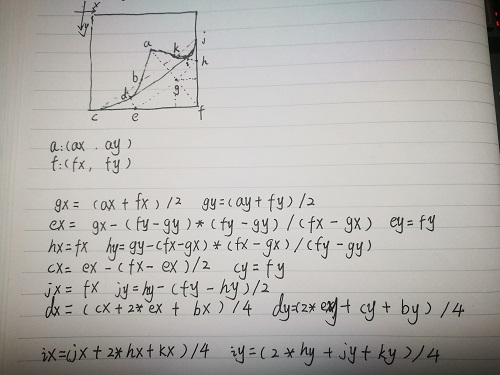 x
y
j
a
k
h
b
g
d
c
e
f
a:(ax . ay)
f:(fx, fy)
gx = (ax + fx) /2 gy=(ay+fy)/2
ex = gx-(fy-gy)*(fy-gy)/(fx-gx) ey=fy
hx=fx hy=gy-(fx-gx)*(fx-gx)/(fy-gy)
cx= ex-(fx-ex)/2 cy=fy
jx = fx jy=hy-(fy-hy)/2
dx = (cx+2*ex + bx) /4 dy=(2*ey+cy+by)/4
ix=(jx+2*hx+kx)/4 iy=(2*hy+jy+ky)/4